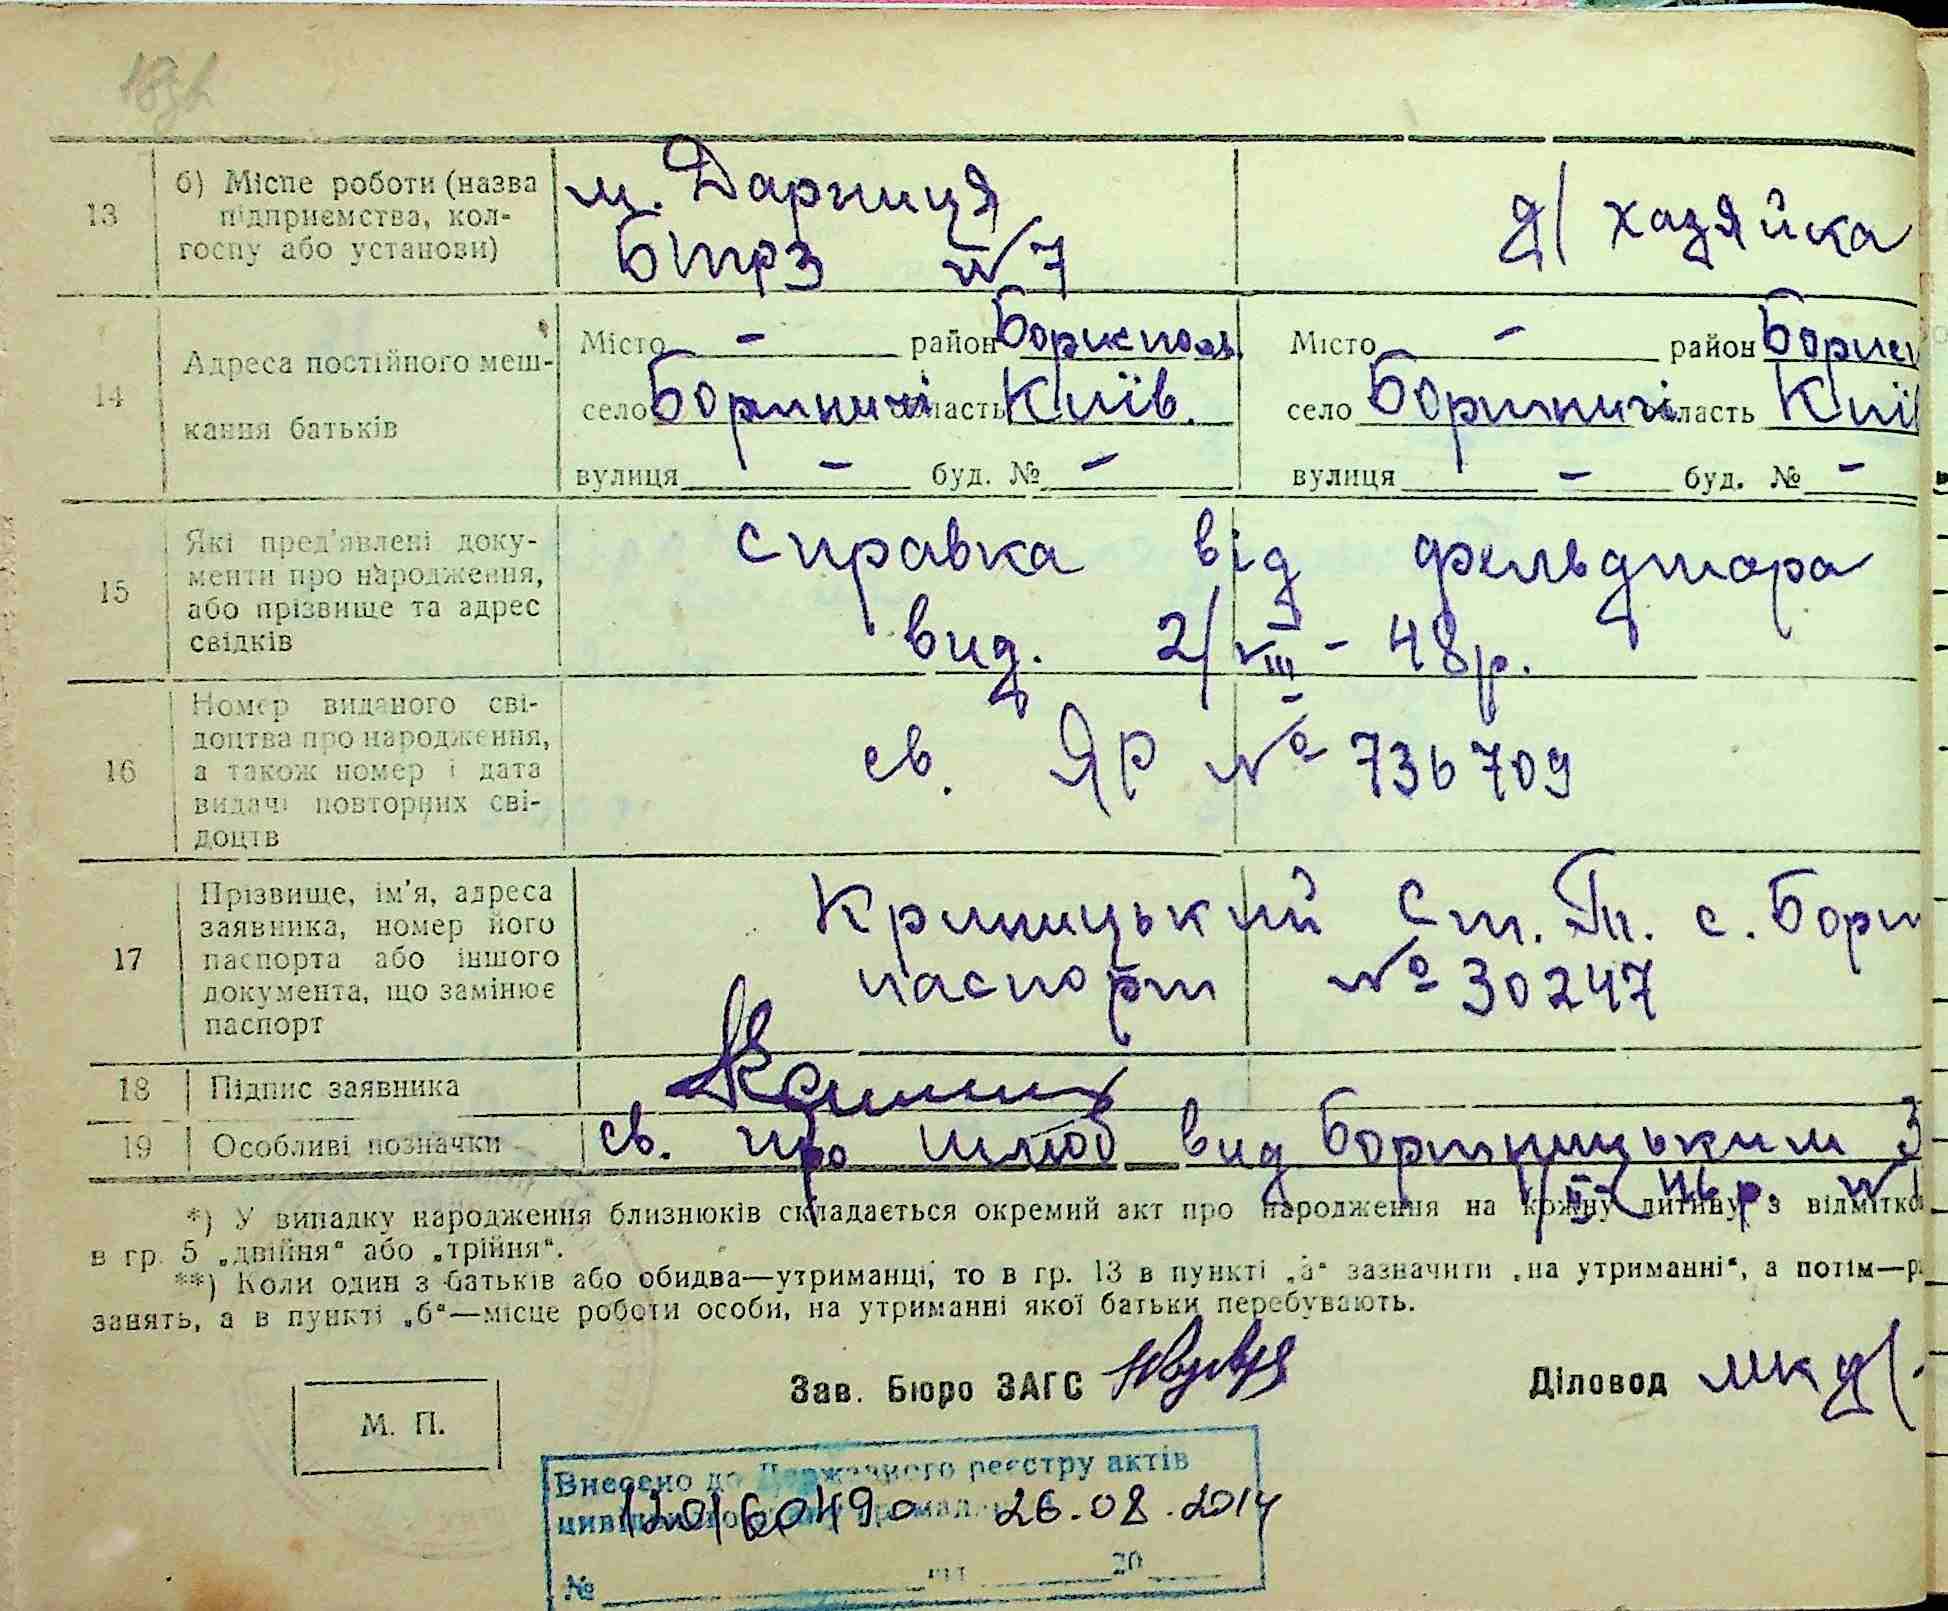 13
б) Місце роботи (назва
підприємства, кол-
госпу або установи)
м. Дарниця
БТРЗ № 7
д/ хазяйка
14
Адреса постійного меш-
кання батьків
Місто - район Бориспол.
село Бортничі область Київ.
вулиця - буд. № -
Місто - район Борисп
село Бортничі область Киї
вулиця - буд. № -
15
Які пред'явлені доку-
менти про народження,
або прізвище та адрес
свідків
справка від фельдшара
вид. 2/VIII - 48р.
16
Номер виданого сві-
доцтва про народження,
а також номер і дата
видачі повторних сві-
доцтв
св. ЯР № 736709
17
Прізвище, ім'я, адреса
заявника, номер його
паспорта або іншого
документа, що замінює
паспорт
Криницький Ст. Т. с. Борт
паспорт № 30247
18
Підпис заявника
19
Особливі позначки
св. про шлюб вид Бортницьким З
46 р. №
*) У випадку народження близнюків складається окремий акт про народження на кожну дитину з відмітко
в гр. 5 „двійня“ або „трійня“.
**) Коли один з батьків або обидва—утриманці, то в гр. 13 в пункті „а“ зазначити „на утриманні“, а потім—р
занять, а в пункті „б“—місце роботи особи, на утриманні якої батьки перебувають.
Зав. Бюро ЗАГС
Діловод
М. П.
Внесено до Державного реєстру актів
цивільного стану громадян
120160490 26.08.2014
№ від 20